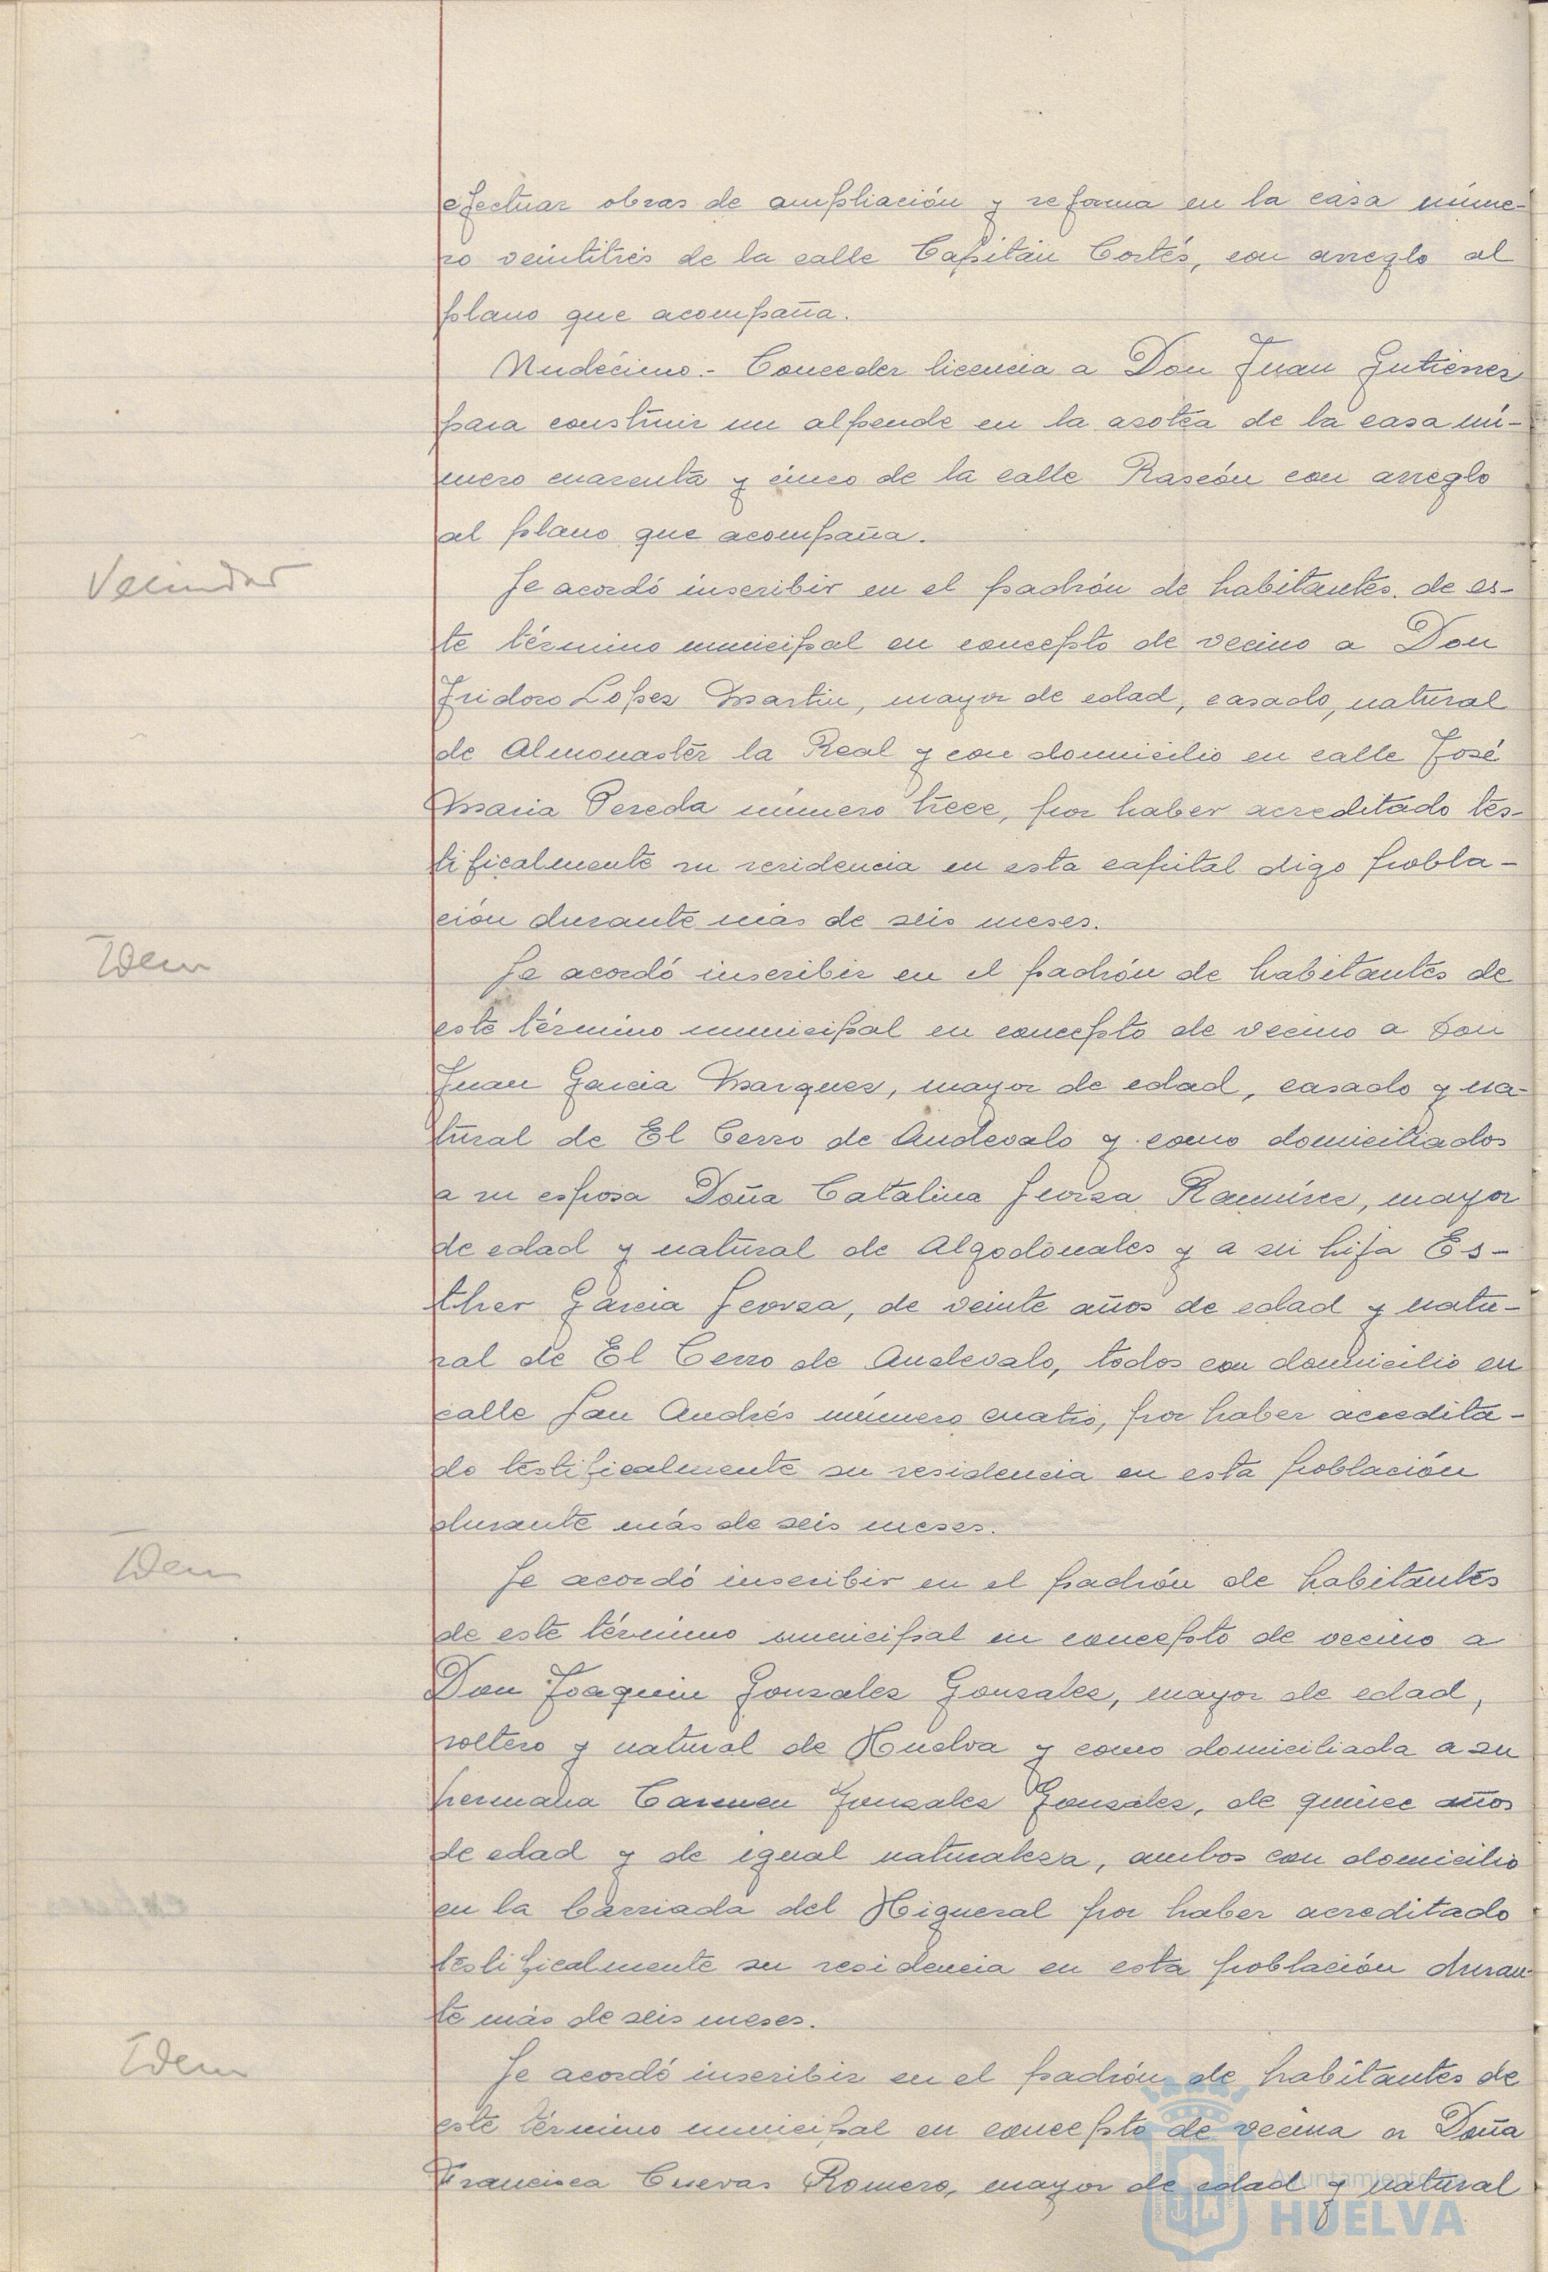 efectuar obras de ampliación y reforma en la casa núme-
ro veintitrés de la calle Capitán Cortés, con arreglo al
plano que acompaña.
Undécimo.- Conceder licencia a Don Juan Gutierrez
para construir un alpende en la azotea de la casa nú-
mero cuarenta y cinco de la calle Rascón con arreglo
al plano que acompaña.
Vecindad
Se acordó inscribir en el padrón de habitantes de es-
te término municipal en concepto de vecino a Don
Isidoro Lopez Martin, mayor de edad, casado, natural
de Almonaster la Real y con domicilio en calle José
Maria Pereda número trece, por haber acreditado tes-
tificalmente su residencia en esta capital digo pobla-
ción durante más de seis meses.
Idem
Se acordó inscribir en el padrón de habitantes de
este término municipal en concepto de vecino a Don
Juan Garcia Marquez, mayor de edad, casado y na-
tural de El Cerro de Andevalo y como domiciliados
a su esposa Doña Catalina Ramírez, mayor
de edad y natural de Algodonales y a su hija Es-
ther Garcia, de veinte años de edad y natu-
ral de El Cerro de Andevalo, todos con domicilio en
calle San Andrés número cuatro, por haber acredita-
do testificalmente su residencia en esta población
durante más de seis meses.
Idem
Se acordó inscribir en el padrón de habitantes
de este término municipal en concepto de vecino a
Don Joaquin Gonzalez Gonzalez, mayor de edad,
soltero y natural de Huelva y como domiciliada a su
hermana Carmen Gonzalez Gonzalez, de quince años
de edad y de igual naturaleza, ambos con domicilio
en la barriada del Higueral por haber acreditado
testificalmente su residencia en esta población duran-
te más de seis meses.
Idem
Se acordó inscribir en el padrón de habitantes de
este término municipal en concepto de vecina a Doña
Francisca Cuevas Romero, mayor de edad y natural
Ayuntamiento de
HUELVA